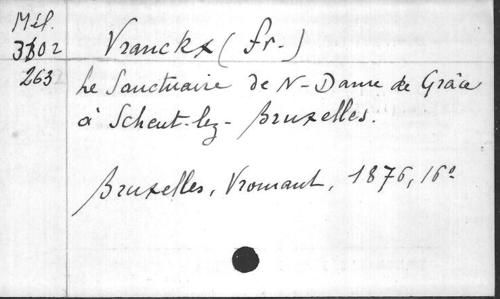 Mél.
3302
263
Vranckx (Fr.)
Le Sanctuaire de N-Dame de Grâce
à Scheut-lez-Bruxelles.
Bruxelles, Vromant, 1876, 16º